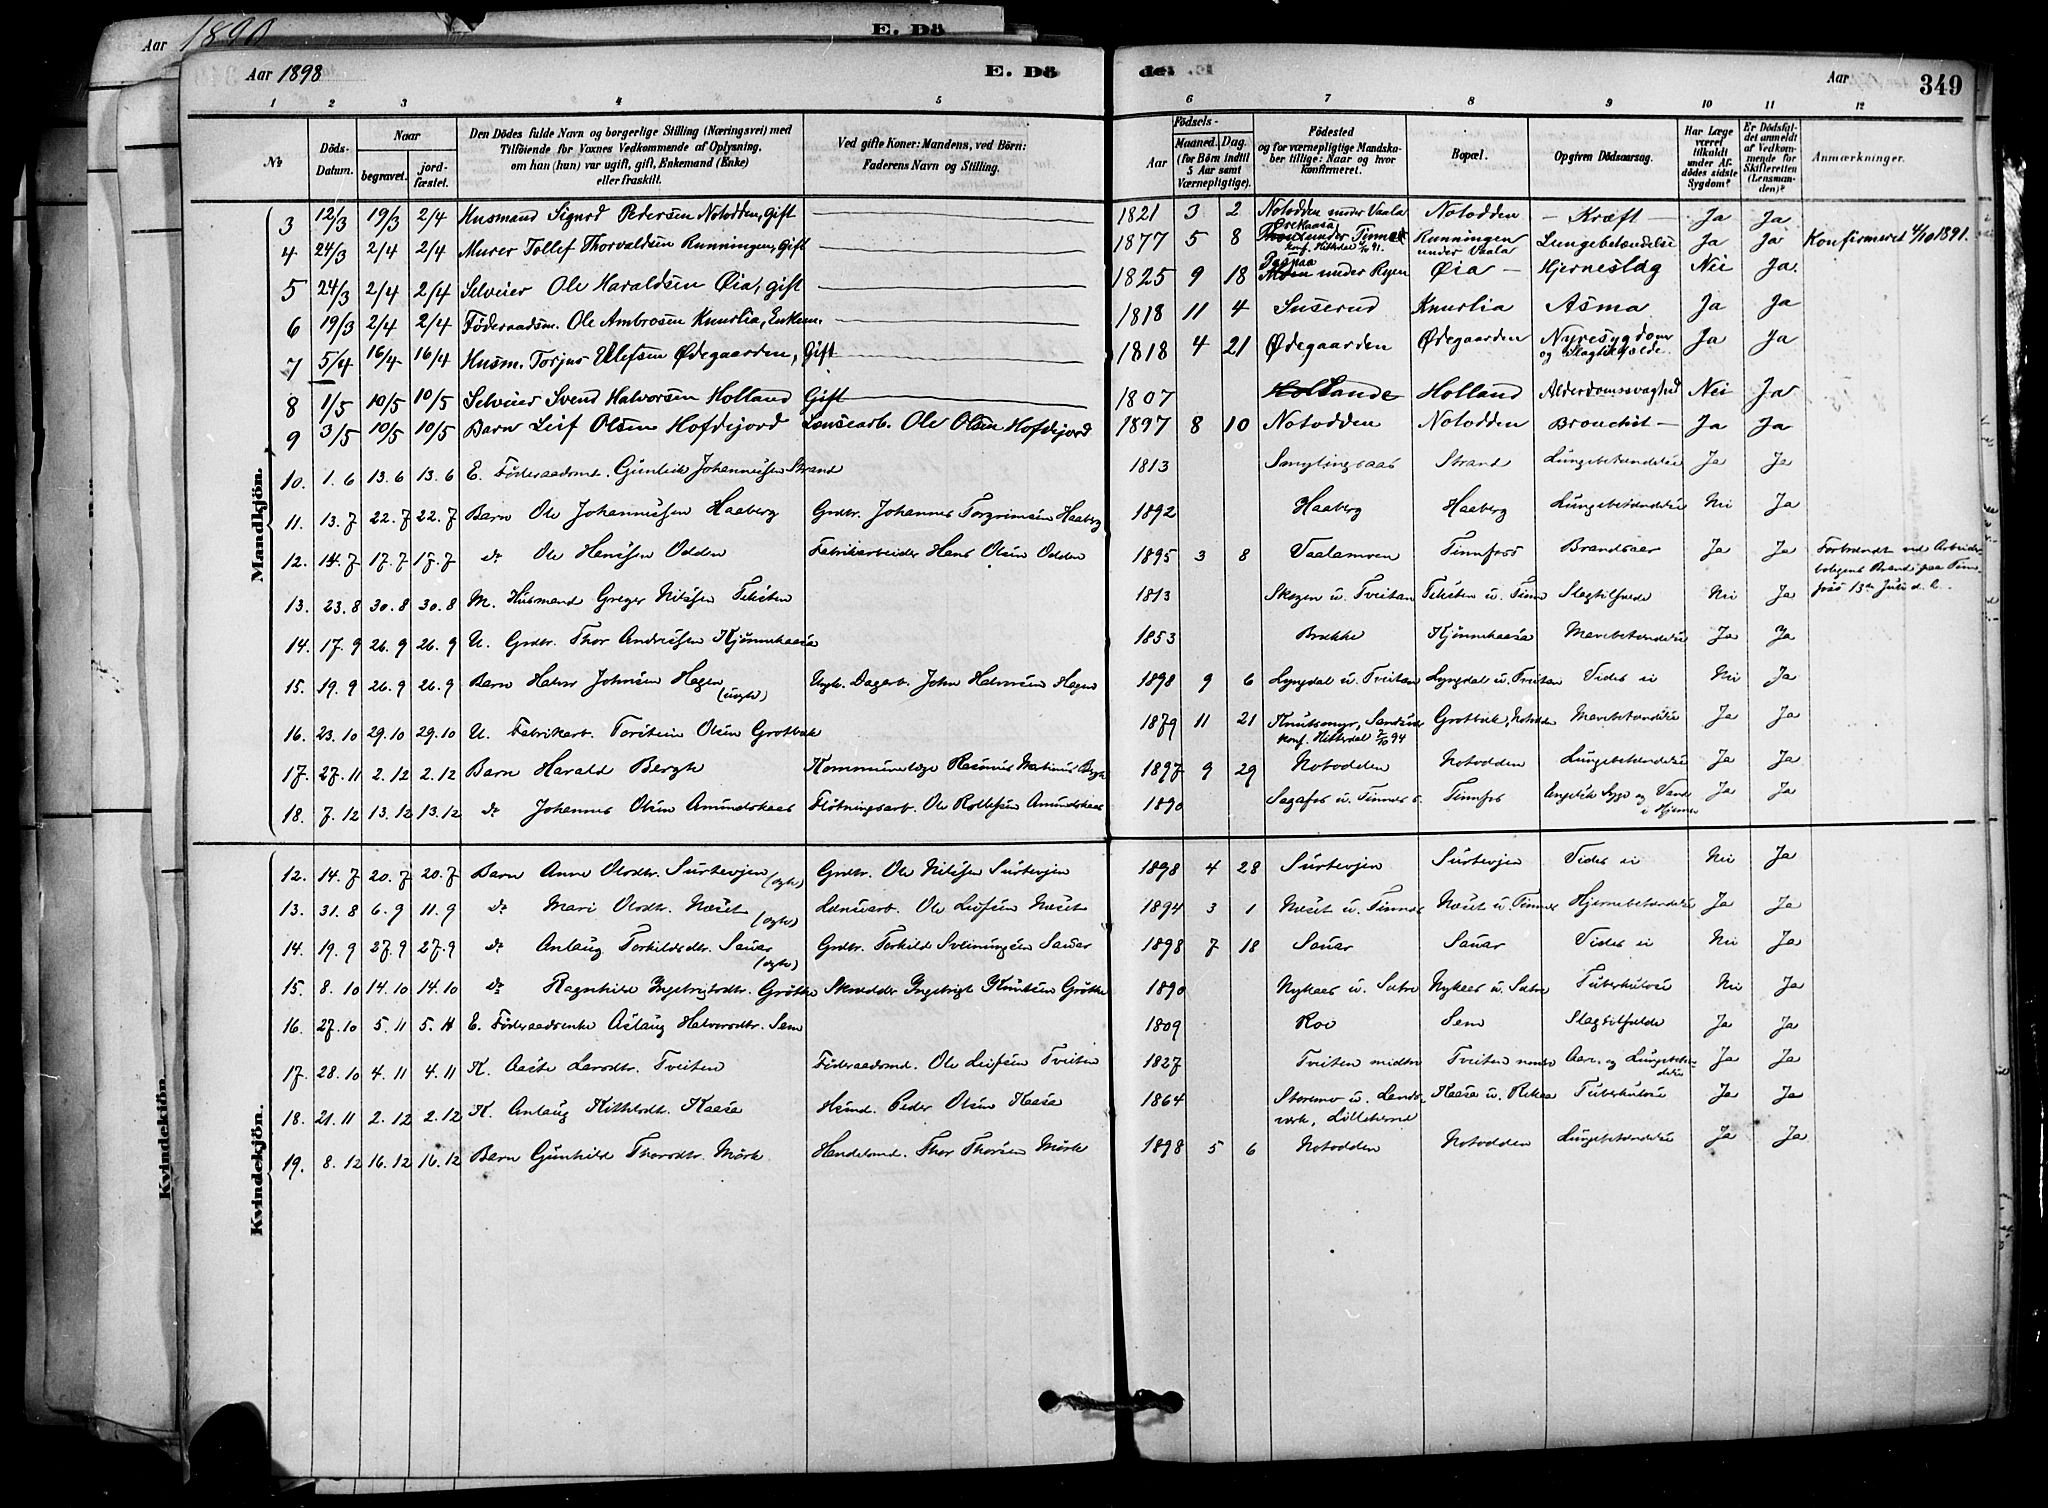 Aar 1890
E. Dö
Aar 1898
E. Dö
de
Aar
349
1 2 3 4 5 6 7 8 9 10 11 12
№
Döds-Datum.
Naar
begravet.
jord-fæstet.
Den Dödes fulde Navn og borgerlige Stilling (Næringsvei) med
Tilföiende for Voxnes Vedkommende af Oplysning,
om han (hun) var ugift, gift, Enkemand (Enke)
eller fraskilt.
Ved gifte Koner: Mandens, ved Börn:
Faderens Navn og Stilling.
Födsels-
Aar
Maaned. Dag.
(for Börn indtil
5 Aar samt
Værnepligtige).
Födested
og for værnepligtige Mandska-
ber tillige: Naar og hvor
konfirmeret.
Bopæl.
Opgiven Dödsaarsag.
Har Læge
været
tilkaldt
under Af-
dödes sidste
Sygdom?
Er Dödsfal-
det anmeldt
af Vedkom-
mende for
Skifteretten
(Lensman-
den)?
Anmærkninger.
Mandkjön.
3 12/3 19/3 2/4 Husmand Sigurd Pedersen Notodden, Gift 1821 3 2 Notodden under Vaala Notodden – Kræft – Ja Ja
4 24/3 2/4 2/4 Murer Tollef Thorvaldsen Runningen, Gift 1877 5 8 under Tinnes konf. Hitterdal 4/10 91. Runningen under Vaala Lungebetændelse Ja Ja Konfirmeret 4/10 1891.
5 24/3 2/4 2/4 Selveier Ole Haraldsen Øia, gift 1825 9 18 Moen under Ryen Øia – Hjerneslag Nei Ja
6 19/3 2/4 2/4 Föderaadsm. Ole Ambrosen Knurlia, Enkem. 1818 11 4 Suserud Knurlia Asma Ja Ja
7 5/4 16/4 16/4 Husm. Torjus Ulefsen Ødegaarden, Gift 1818 4 21 Ødegaarden Ødegaarden Nyresygdom og Slagtilfælde Ja Ja
8 1/5 10/5 10/5 Selveier Svend Halvorsen Holland Gift 1807 Hollande Holland Alderdomssvaghed Nei Ja
9 3/5 10/5 10/5 Barn Leif Olsen Hofdejord Lænsearb. Ole Olsen Hofdejord 1897 8 10 Notodden Notodden Bronchit – Ja Ja
10. 1. 6 13. 6 13. 6 E. Föderaadsmd. Gunleik Johannessen Strand 1813 Smylingsaas Strand Lungebetændelse Ja Ja
11. 13. 7 22. 7 22. 7 Barn Ole Johannessen Haaberg Grdbr. Johannes Torgrimsen Haaberg 1892 Haaberg Haaberg Lungebetændelse Nei Ja
12. 14. 7 17. 7 17. 7 do Ole Hansen Odden Fabrikarbeider Hans Olsen Odden 1895 3 8 Vaalamoen Tinnfoss Brandsaar Ja Ja Forbrændt ved Arbeider-
boligens Brand paa Tinn-
foss 13de Juli d. A.
13. 23. 8 30. 8 30. 8 M. Husmand Greger Nilssen Teksten 1813 Skogen u. Tveitan Teksten u. Tinne Slagtilfælde Nei Ja
14. 17. 9 26. 9 26. 9 U. Grdbr. Thor Andersen Kjönnekaasa 1853 Brekke Kjönnekaasa Mavebetændelse Ja Ja
15. 19. 9 26. 9 26. 9 Barn Halvor Johnsen Hagen (uægte) Ungk. Dagarb. John Halvorsen Hagen 1898 9 6 Lyngdal u. Tveitan Lyngdal u. Tveitan Vides ei Nei Ja
16. 23. 10 29. 10 29. 10 U. Fabrikarb. Torstein Olsen Grotbæk 1879 11 21 Knutsmyr, Sandsvde konf. Hitterdal 7/10 94 Grotbæk, Notodden Mavebetændelse Ja Ja
17. 27. 11 2. 12 2. 12 Barn Harald Bergh Kommunelæge Rasmus Martinus Bergh 1897 9 29 Notodden Notodden Lungebetændelse Ja Ja
18. 7. 12 13. 12 13. 12 do Johannes Olsen Amundskaas Flötningsarb. Ole Rollefsen Amundskaas 1890 Sagafos u. Tinnes Tinnfos Engelsk Syge og Vand i Hjernen Ja Ja
Kvindekjön.
12. 14. 7 20. 7 20. 7 Barn Anne Olsdtr. Surtevjen (ægte) Grdbr. Ole Nilssen Surtevjen 1898 4 28 Surtevjen Surtevjen Vides ei Nei Ja
13. 31. 8 6. 9 11. 9 do Mari Olsdtr. Næset (ægte) Lænsearb. Ole Leifsen Næset 1894 3 1 Næset u. Tinnes Næset u. Tinnes Hjernebetændelse Ja Ja
14. 19. 9 27. 9 27. 9 do Anlaug Torkildsdtr. Sauar (ægte) Grdbr. Torkild Sveinungsen Sauar 1898 7 18 Sauar Sauar Vides ei Nei Ja
15. 8. 10 14. 10 14. 10 do Ragnhild Ingebrigtsdtr. Grötte Skrædder Ingebrigt Knutsen Grötte 1890 Nykaas u. Sætre Nykaas u. Sætre Tuberkulose Nei Ja
16. 27. 10 5. 11 5. 11 E. Föderaadsenke Aslaug Halvorsdtr. Sem 1809 Roe Sem Slagtilfælde Ja Ja
17. 28. 10 4. 11 4. 11 K. Aaste Larsdtr. Tveiten Föderaadsmd. Ole Leifsen Tveiten 1827 Tveiten midtre Tveiten nordre Aare- og Lungebetæn-
delse Ja Ja
18. 21. 11 2. 12 2. 12 K. Anlaug Kittilsdtr. Kaasa Hsmd. Peder Olsen Kaasa 1864 Storemo u. Lands-
verk, Lilleherred Kaasa u. Rikaa Tuberkulose Ja Ja
19. 8. 12 16. 12 16. 12 Barn Gunhild Thorsdtr. Mörk Handelsmd. Thor Thorsen Mörk 1898 5 6 Notodden Notodden Lungebetændelse Ja Ja
Kvindekjön.